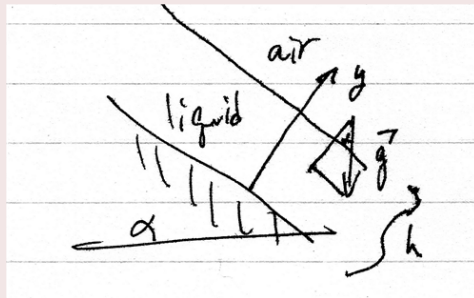 air
y
liquid
g⃗
α
h